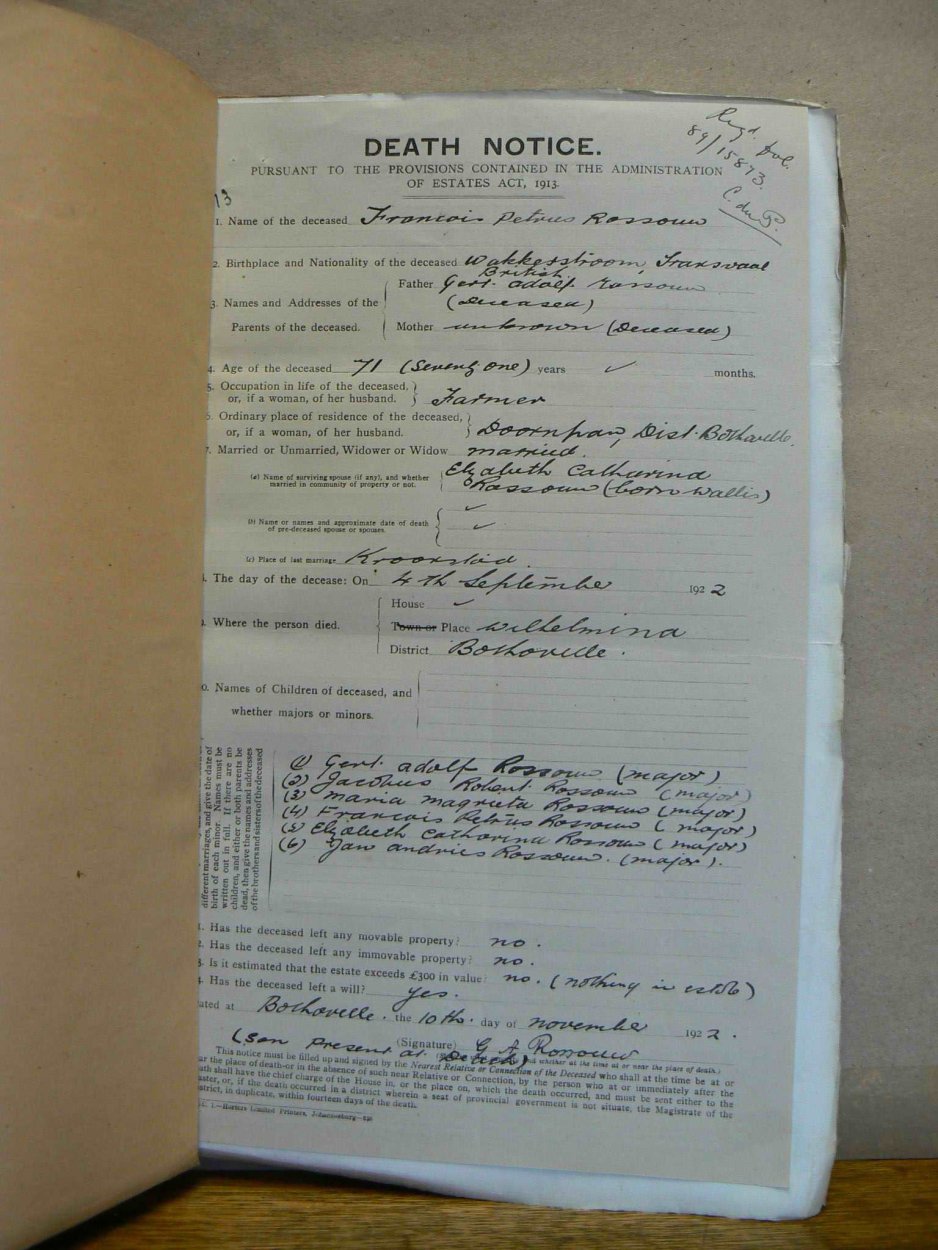 Regd. Avl.
89/15873.
DEATH NOTICE.
PURSUANT TO THE PROVISIONS CONTAINED IN THE ADMINISTRATION
OF ESTATES ACT, 1913.
13
1. Name of the deceased Francois Petrus Rossouw
2. Birthplace and Nationality of the deceased Wakkerstroom, Transvaal
British.
3. Names and Addresses of the Parents of the deceased.
Father Gert. Adolf Rossouw
(deceased)
Mother unknown (Deceased)
4. Age of the deceased 71 (Seventy one) years ✓ months.
5. Occupation in life of the deceased,
or, if a woman, of her husband. Farmer
6. Ordinary place of residence of the deceased,
or, if a woman, of her husband. Doornpan, Dist. Bothaville.
7. Married or Unmarried, Widower or Widow married.
(a) Name of surviving spouse (if any), and whether
married in community of property or not.
Elizabeth Catharina
Rossouw (born Wallis)
(b) Name or names and approximate date of death
of pre-deceased spouse or spouses.
✓
✓
(c) Place of last marriage Kroonstad.
. The day of the decease: On 4th September 1922
. Where the person died.
House ✓
Town or Place Wilhelmina
District Bothaville.
0. Names of Children of deceased, and
whether majors or minors.
different marriages, and give the date of
birth of each minor. Names must be
written out in full. If there are no
children, and either or both parents be
dead, then give the names and addresses
of the brothers and sisters of the deceased
(1) Gert. Adolf Rossouw (major)
(2) Jacobus Robert Rossouw (major)
(3) Maria Magrieta Rossouw (major)
(4) Francois Petrus Rossouw (major)
(5) Elizabeth Catharina Rossouw (major)
(6) Jan Andries Rossouw. (major).
1. Has the deceased left any movable property? no.
2. Has the deceased left any immovable property? no.
3. Is it estimated that the estate exceeds £300 in value? no. (nothing in estate)
4. Has the deceased left a will? yes.
ated at Bothaville. the 10th. day of November 1922.
(Signature) G A Rossouw
(Son present at Death)
and whether at the time at or near the place of death.)
This notice must be filled up and signed by the Nearest Relative or Connection of the Deceased who shall at the time be at or
ar the place of death—or in the absence of such near Relative or Connection, by the person who at or immediately after the
ath shall have the chief charge of the House in, or the place on, which the death occurred, and must be sent either to the
aster, or, if the death occurred in a district wherein a seat of provincial government is not situate, the Magistrate of the
strict, in duplicate, within fourteen days of the death.
1.—Hortors Limited Printers, Johannesburg—